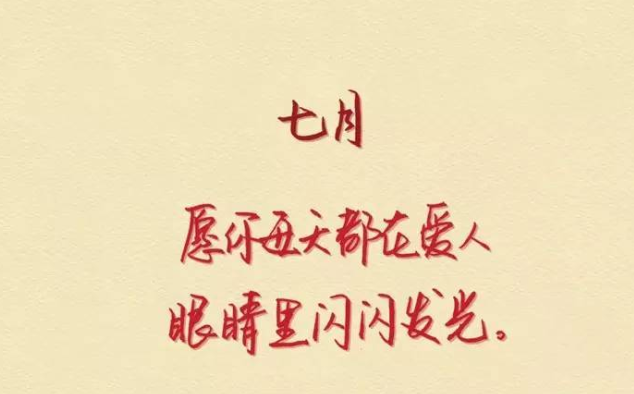 七月
愿你每天都在爱人
眼睛里闪闪发光。